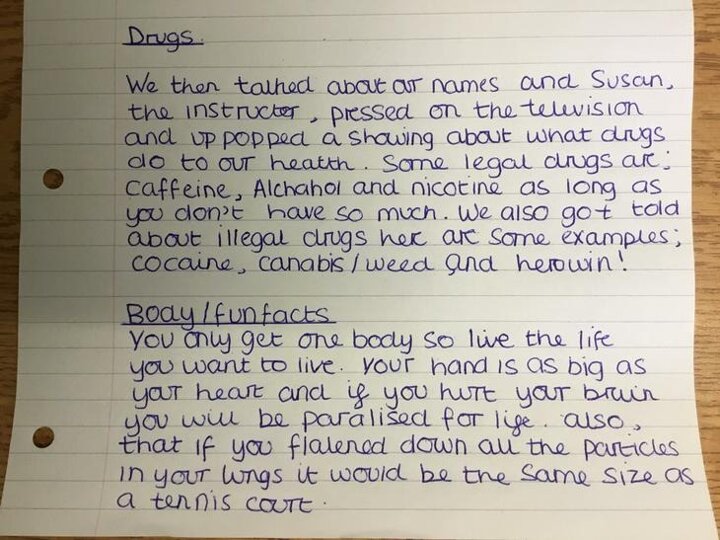 Drugs.
We then talked about our names and Susan,
the instructor, pressed on the television
and up popped a showing about what drugs
do to our health. Some legal drugs are;
caffeine, Alchahol and nicotine as long as
you don't have so much. We also got told
about illegal drugs her are some examples;
cocaine, canabis/weed and herowin!
Body/funfacts
You only get one body so live the life
you want to live. Your hand is as big as
your heart and if you hurt your bruin
you will be paralised for life. also,
that if you flatened down all the particles
in your lungs it would be the same size as
a tennis court.